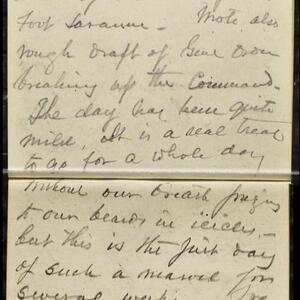 Foot Laramie — Wrote also
rough draft of Genl Order
breaking up the Command.
The day has been quite
mild. It is a real treat
to go for a whole day
without our breath freezing
to our beards in icicles,—
but this is the first day
of such a marvel for
several weeks.